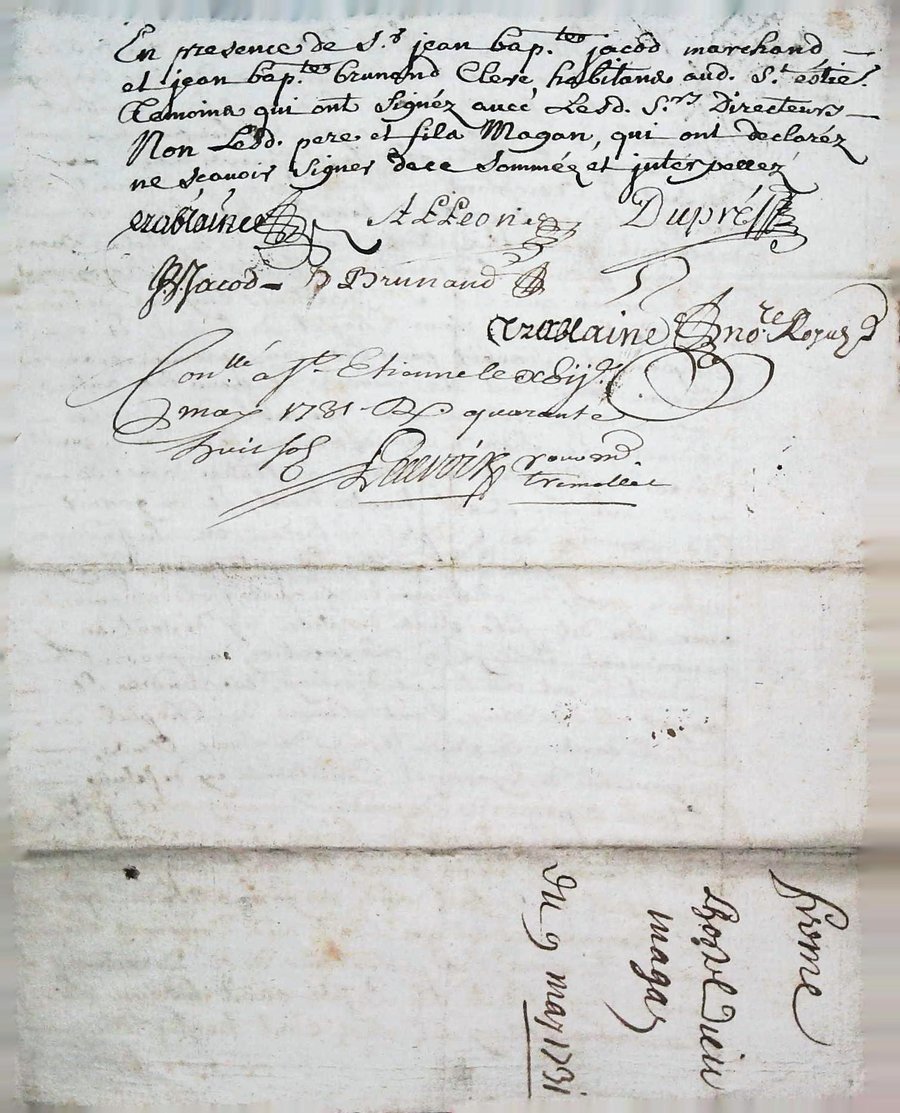 En presence de S.r jean bap.tes jacod marchand
et jean bap.tes brunand Clerc habitans aud. S.t étie.
temoins qui ont signéz avec Lesd. S.rs Directeurs
Non Lesd. pere et fils Magan, qui ont declaréz
ne sçavoir signer de ce sommés et interpellez
Dupré
Jacod Brunand
no.re Royal
Con.llé a St Etienne le xviij.e
may 1731 R. quarante
huit sols
ferme
Lhotel Dieu
magan
Du 9 may 1731